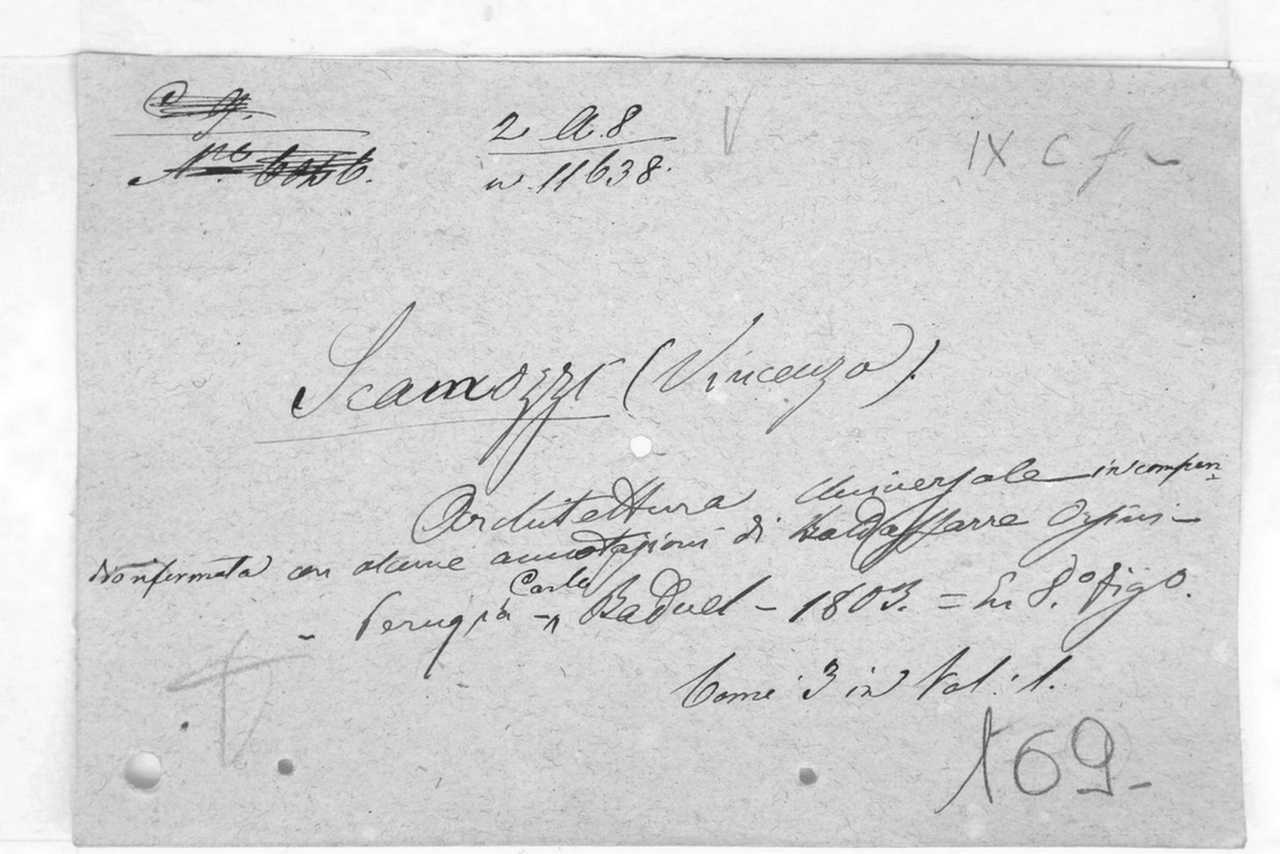 2 A. 8
n. 11638.
V
IX C f
Scamozzi (Vincenzo).
Architettura Universale in compen-
dio fermata con alcune annotazioni di Baldassarre Orsini -
- Perugia - Carlo Baduel - 1803. = In 8.º fig.º
Tomi 3 in Vol: 1.
169 -